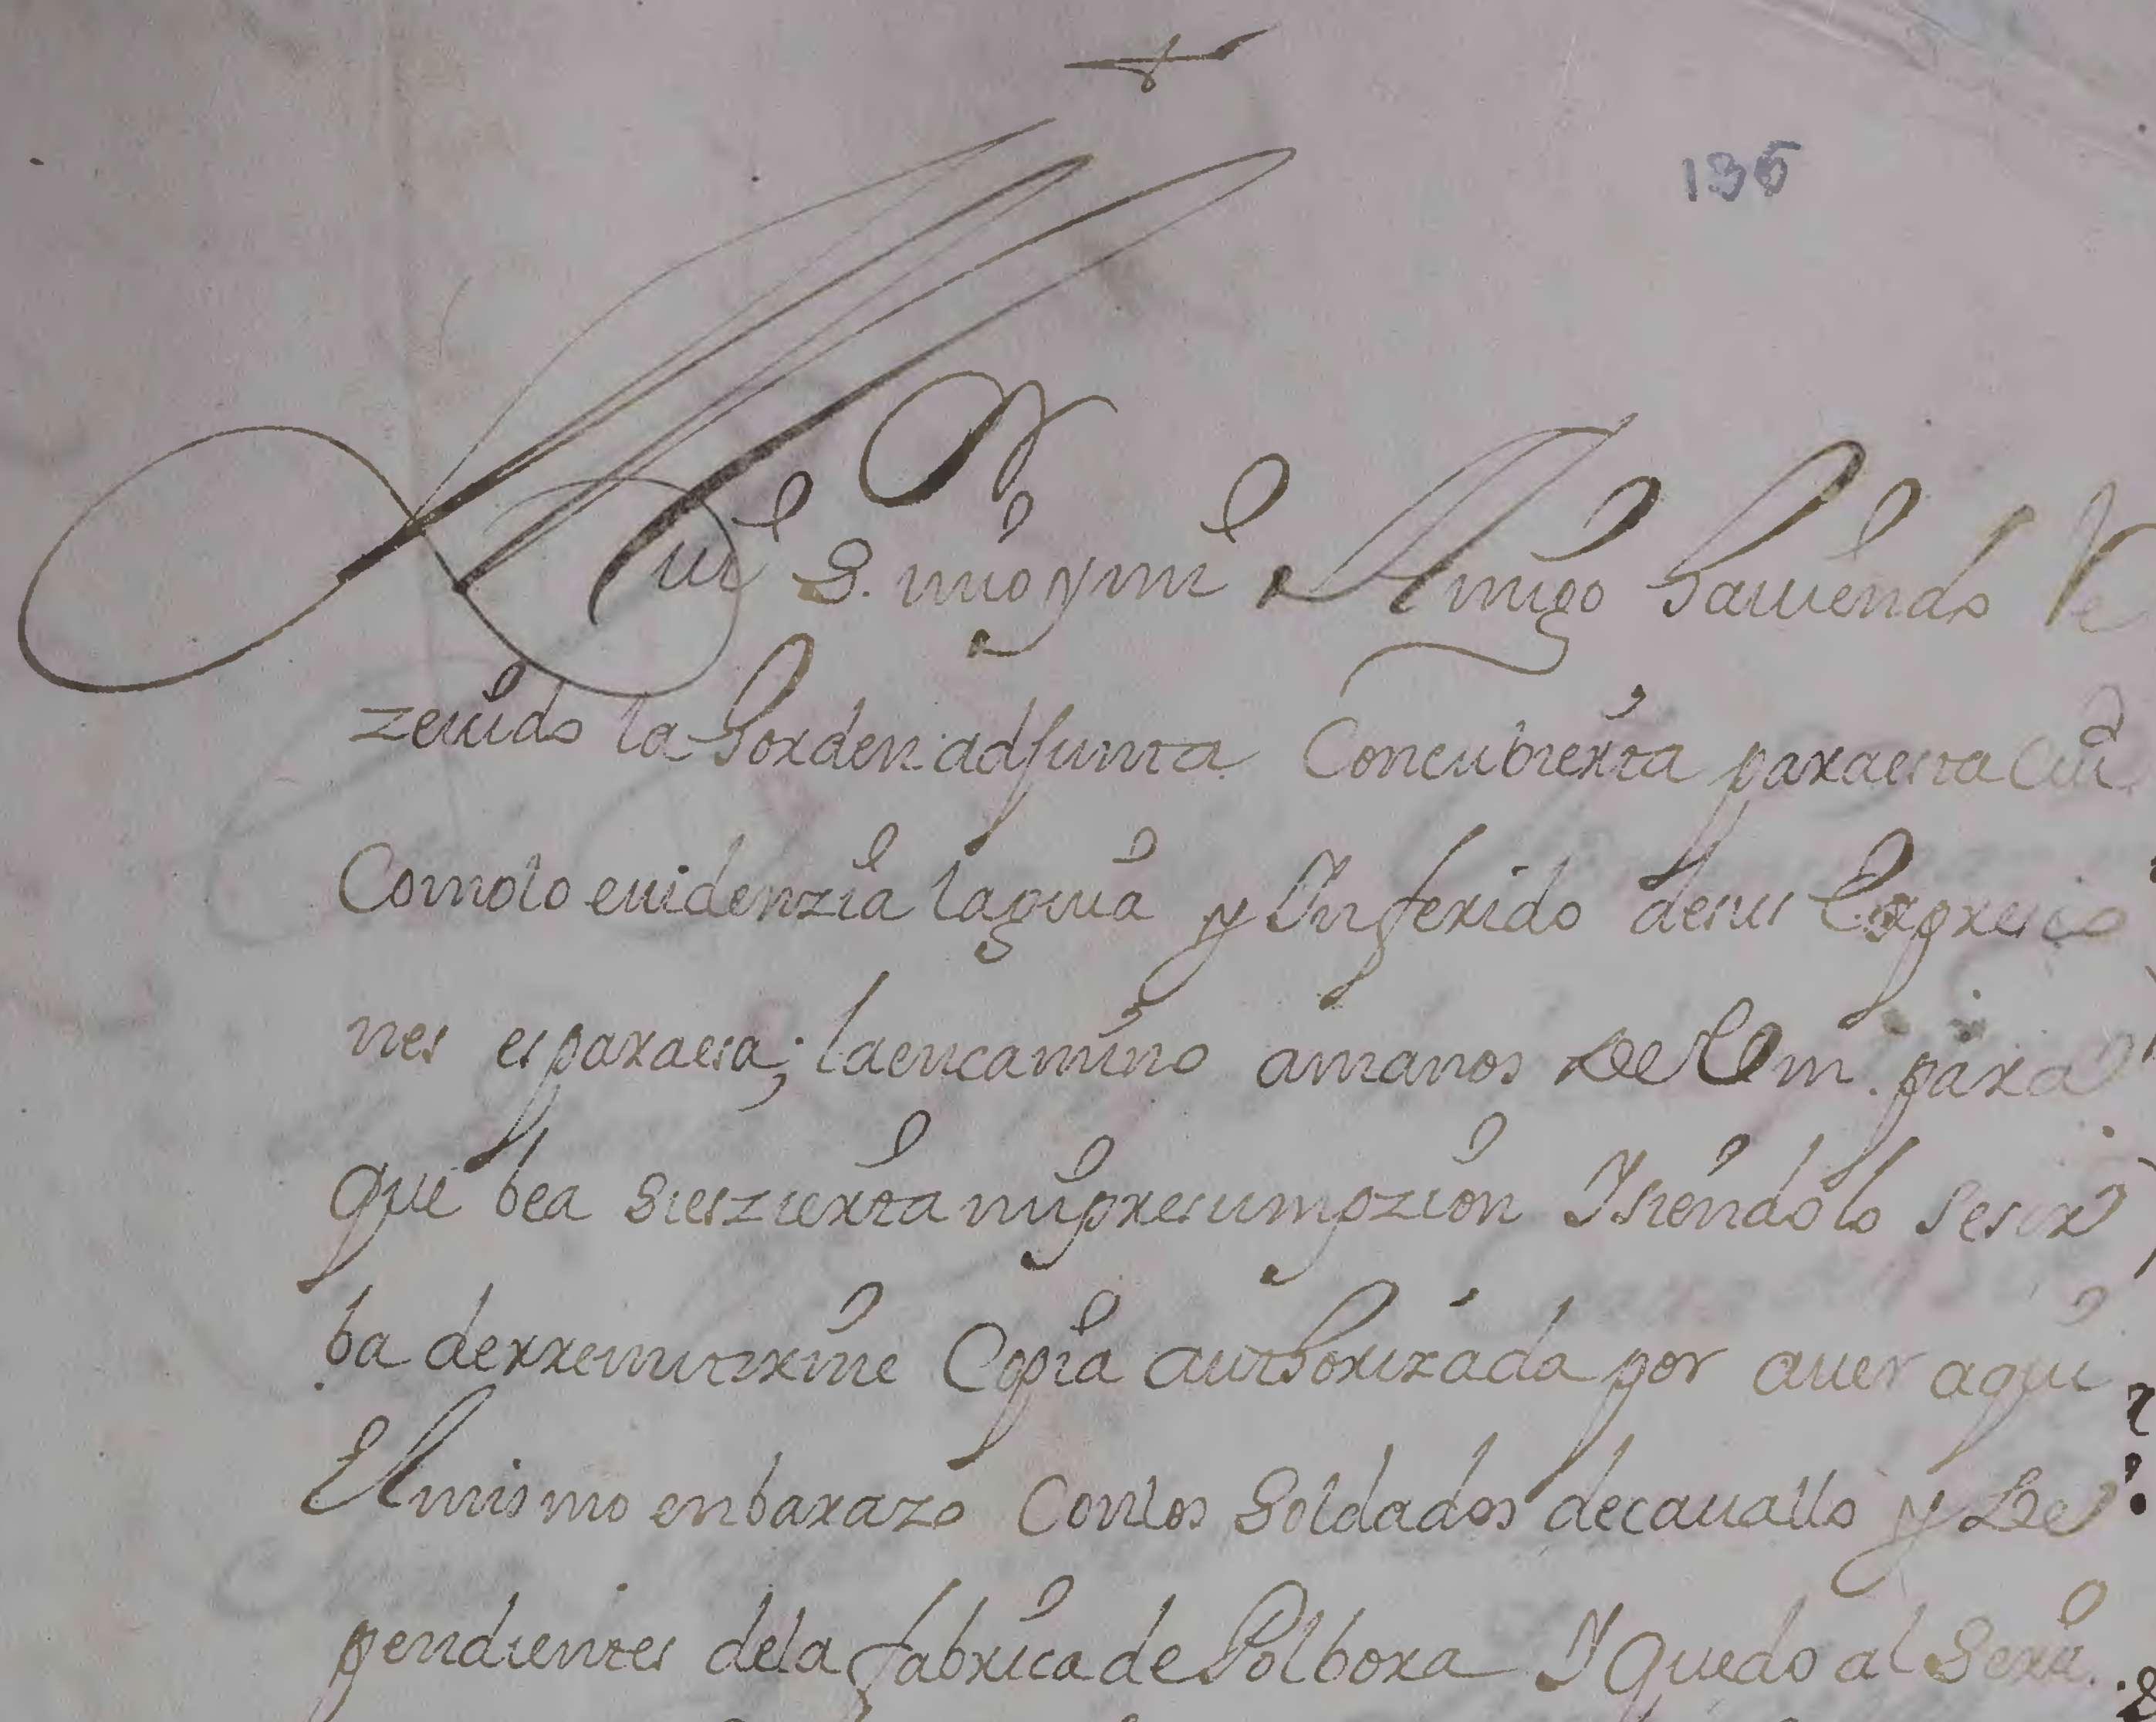 136
Mui S.r mio y mi Amigo hauiendo Re
zeuido la horden adjunta Con cubierta para esta Ciu.d
Como lo euidenzia la guia y Inferido de sus Expresio
nes es para esa; la encamino a manos de Vm. para
que bea si es zierta mi presumpzion Y siendolo se sir
ba de rremitirme Copia authorizada por auer aqui
El mismo enbarazo Con los Soldados de cauallo y De
pendientes de la fabrica de Polbora Y quedo al Serui.